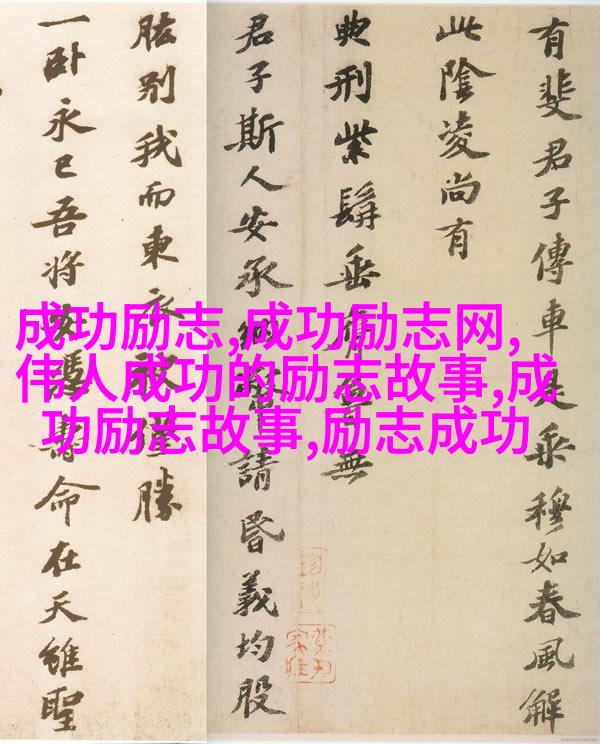 成功励志,成功励志网,
伟人成功的励志故事,成
功励志故事,励志成功
有斐君子傳車是乘穆如春風解
此陰凌尚有
典刑紫髯垂膺魯無
君子斯人安承納幣請昏義均股
肱別我而東衣袂僅勝
一卧永已吾將安憑壽命在天雖聖